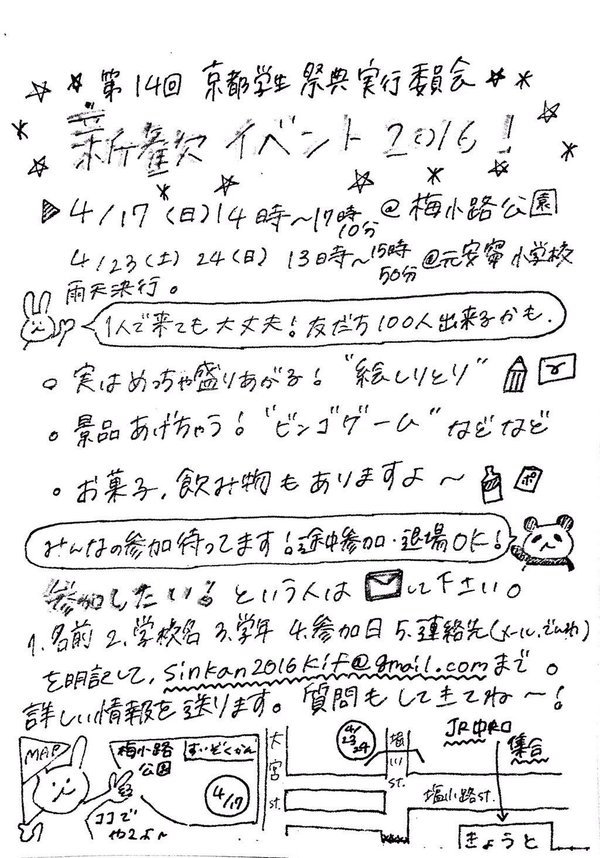 第14回 京都学生祭典実行委員会
新歓イベント2016!
4/17(日)14時~17時10分@梅小路公園
4/23(土)24(日)13時~15時50分@元安寧小学校
雨天決行。
1人で来ても大丈夫!友だち100人出来るかも.
実はめっちゃ盛りあがる!"絵しりとり"
景品あげちゃう!"ビンゴゲーム"などなど
お菓子,飲み物もありますよ~
ポ
みんなの参加待ってます!途中参加・退場OK!
参加したい!という人は して下さい。
1.名前 2.学校名 3.学年 4.参加日 5.連絡先(メール,でんわ)
を明記して,sinkan2016kif@gmail.comまで。
詳しい情報を送ります。質問もしてきてね~!
MAP
梅小路公園
すいぞくかん
4/17
ココでやるよ~
大宮st.
4/23 24
堀川st.
JR中央口
集合
塩小路st.
きょうと